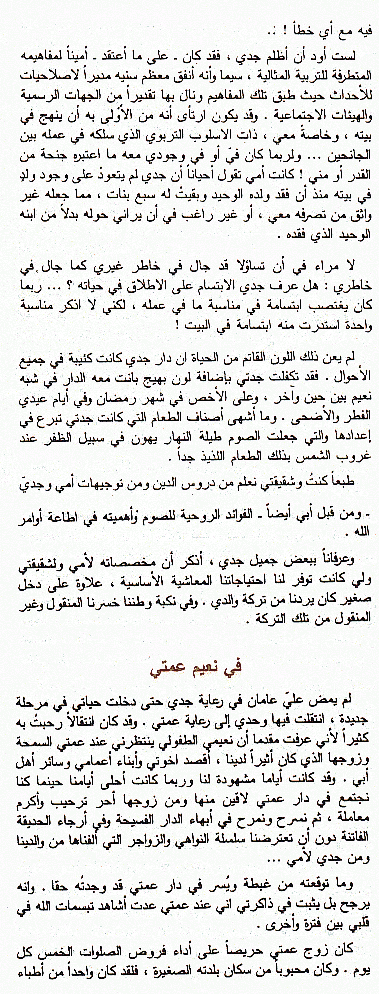 فيه مع أي خطأ ! .:
لست أود أن أظلم جدي ، فقد كان ـ على ما أعتقد ـ أميناً لمفاهيمه
المتطرفة للتربية المثالية ، سيما وأنه أنفق معظم سنيه مديراً لاصلاحيات
للأحداث حيث طبق تلك المفاهيم ونال بها تقديراً من الجهات الرسمية
والهيئات الاجتماعية . وقد يكون ارتأى أنه من الأولى به أن ينهج في
بيته ، وخاصةً معي ، ذات الاسلوب التربوي الذي سلكه في عمله بين
الجانحين ... ولربما كان فيّ أو في وجودي معه ما اعتبره جنحة من
القدر أو مني ! كانت أمي تقول أحياناً أن جدي لم يتعودْ على وجود ولدٍ
في بيته منذ أن فقد ولده الوحيد وبقيتْ له سبع بنات ، مما جعله غير
واثق من تصرفه معي ، أو غير راغب في أن يراني حوله بدلاً من ابنه
الوحيد الذي فقده .
لا مراء في أن تساؤلا قد جال في خاطر غيري كما جال في
خاطري : هل عرف جدي الابتسام على الاطلاق في حياته ؟ ... ربما
كان يغتصب ابتسامة في مناسبة ما في عمله ، لكني لا اذكر مناسبة
واحدة استدرت منه ابتسامة في البيت !
لم يعن ذلك اللون القاتم من الحياة ان دار جدي كانت كئيبة في جميع
الأحوال . فقد تكفلت جدتي بإضافة لون بهيج بانت معه الدار في شبه
نعيم بين حين وآخر ، وعلى الأخص في شهر رمضان وفي أيام عيدي
الفطر والأضحى . وما أشهى أصناف الطعام التي كانت جدتي تبرع في
إعدادها والتي جعلت الصوم طيلة النهار يهون في سبيل الظفر عند
غروب الشمس بذلك الطعام اللذيذ جداً .
طبعاً كنتُ وشقيقتي نعلم من دروس الدين ومن توجيهات أمي وجديّ
ـ ومن قبل أبي أيضاً ـ الفوائد الروحية للصوم وأهميته في اطاعة أوامر
الله .
وعرفاناً ببعض جميل جدي ، أذكر أن مخصصاته لأمي ولشقيقتي
ولي كانت توفر لنا احتياجاتنا المعاشية الأساسية ، علاوة على دخل
صغير كان يردنا من تركة والدي . وفي نكبة وطننا خسرنا المنقول وغير
المنقول من تلك التركة .
في نعيم عمتي
لم يمض عليّ عامان في رعاية جدي حتى دخلت حياتي في مرحلة
جديدة ، انتقلت فيها وحدي إلى رعاية عمتي . وقد كان انتقالاً رحبتُ به
كثيراً لأني عرفت مقدما أن نعيمي الطفولي ينتظرني عند عمتي السمحة
وزوجها الذي كان أثيراً لدينا ، أقصد اخوتي وأبناء أعمامي وسائر أهل
أبي . وقد كانت أياما مشهودة لنا وربما كانت أحلى أيامنا حينما كنا
نجتمع في دار عمتي لاقين منها ومن زوجها أحر ترحيب وأكرم
معاملة ، ثم نسرح ونمرح في أبهاء الدار الفسيحة وفي أرجاء الحديقة
الفاتنة دون أن تعترضنا سلسلة النواهي والزواجر التي ألفناها من والدينا
ومن جدي لأمي ...
وما توقعته من غبطة ويُسر في دار عمتي قد وجدتُه حقا . وإنه
يرجح بل يثبت في ذاكرتي اني عند عمتي عدت أشاهد تبسمات الله في
قلبي بين فترة وأخرى .
كان زوج عمتي حريصاً على أداء فروض الصلوات الخمس كل
يوم . وكان محبوباً من سكان بلدته الصغيرة ، فلقد كان واحداً من أطباء